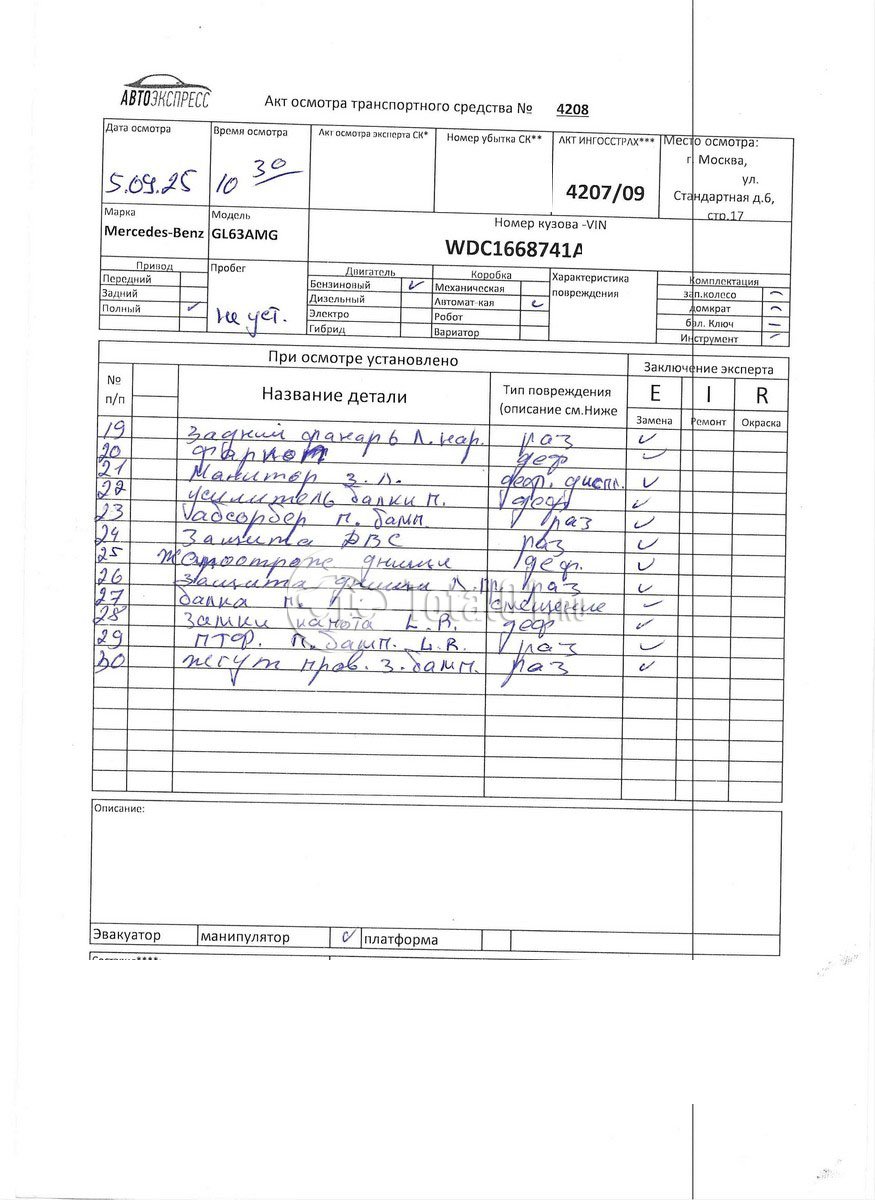 АВТОЭКСПРЕСС
Акт осмотра транспортного средства № 4208
Дата осмотра
5.09.25
Время осмотра
10 30
Акт осмотра эксперта СК*
Номер убытка СК**
АКТ ИНГОССТРАХ***
4207/09
Место осмотра:
г. Москва,
ул.
Стандартная д.6,
стр.17
Марка
Mercedes-Benz
Модель
GL63AMG
Номер кузова -VIN
WDC1668741A
Привод
Передний
Задний
Полный ✓
Пробег
не уст.
Двигатель
Бензиновый ✓
Дизельный
Электро
Гибрид
Коробка
Механическая
Автомат-кая ✓
Робот
Вариатор
Характеристика
повреждения
Комплектация
зап.колесо –
домкрат –
бал. Ключ –
Инструмент –
При осмотре установлено
Заключение эксперта
№
п/п
Название детали
Тип повреждения
(описание см.Ниже
E I R
Замена Ремонт Окраска
19 Задний фанарь Л. нар. раз ✓
20 Фаркоп деф ✓
21 Манитор з. Л. деф. диспл. ✓
22 усилитель балки п. деф ✓
23 абсорбер п. бамп. раз ✓
24 Защита ДВС раз ✓
25 днищи деф. ✓
26 Защита днищи Л. П. раз ✓
27 балка п. смещение ✓
28 Замки капота L.R. деф ✓
29 ПТФ. п. бамп. L.R. раз ✓
30 жгут пров. з. бамп. раз ✓
Total01.RU
Описание:
Эвакуатор манипулятор ✓ платформа